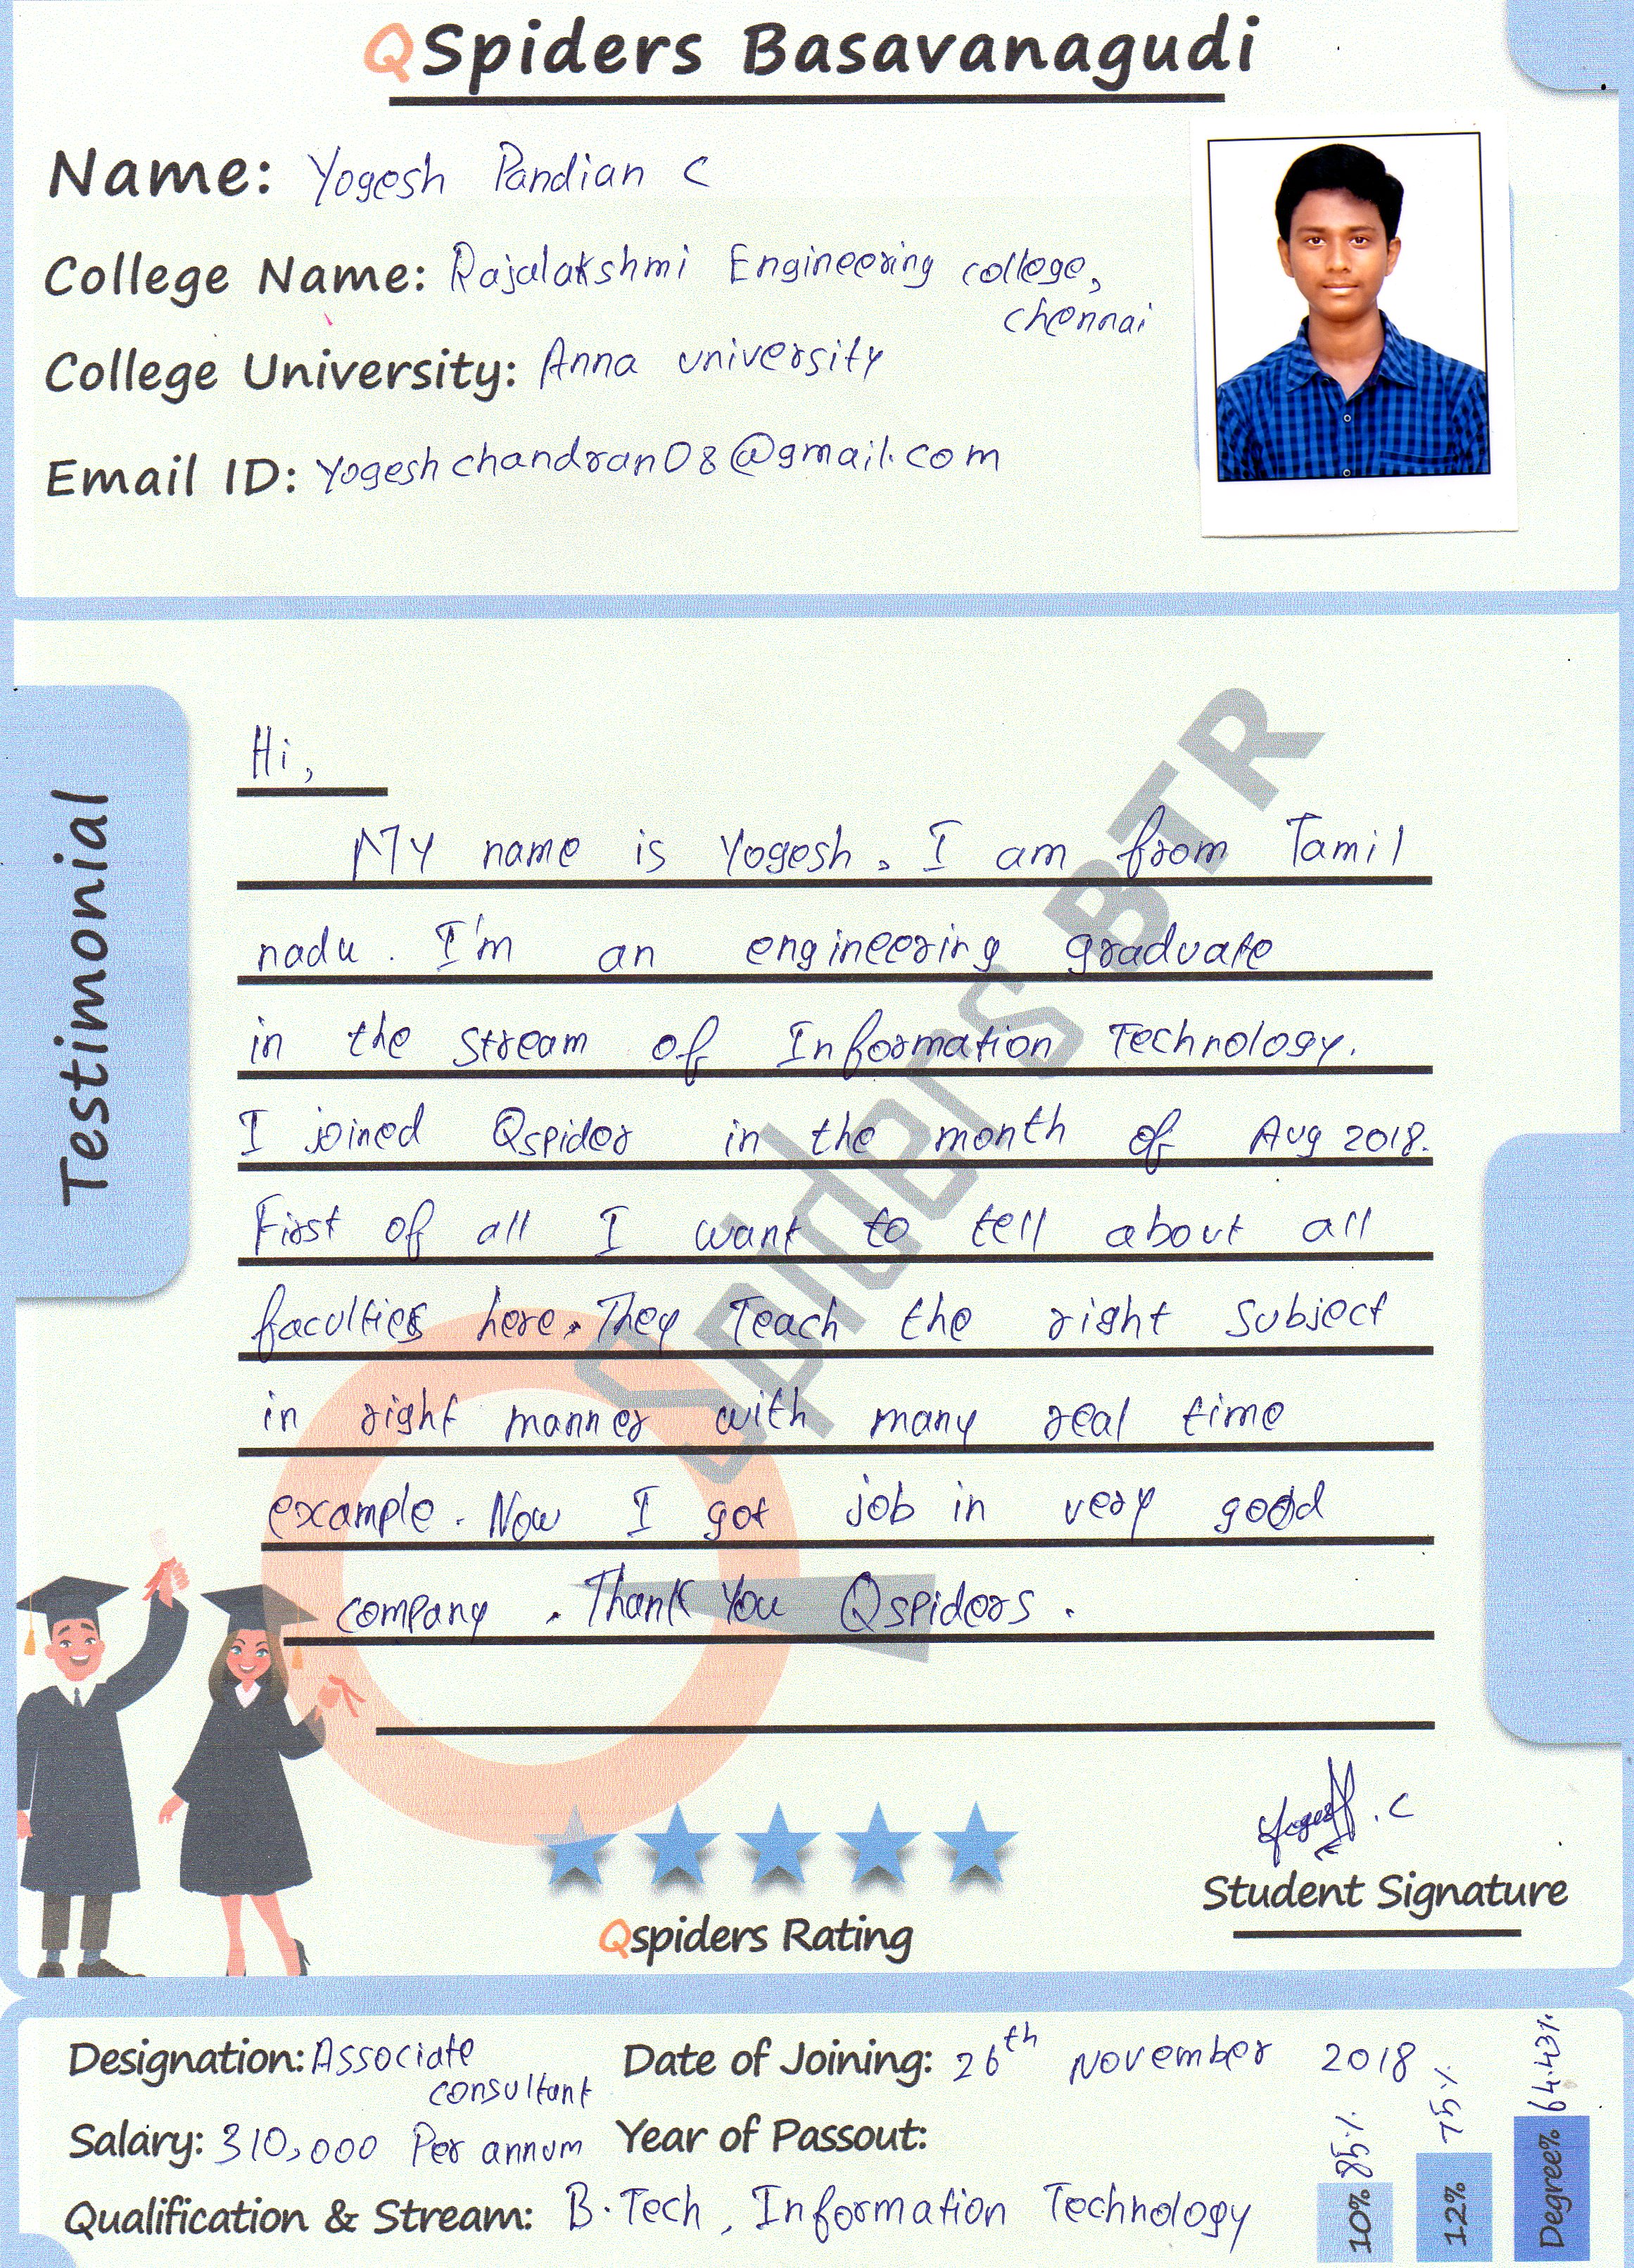 QSpiders Basavanagudi
Name: Yogesh Pandian C
College Name: Rajalakshmi Engineering college,
chennai
College University: Anna university
Email ID: Yogeshchandran08@gmail.com
Testimonial
Hi,
My name is Yogesh. I am from Tamil
nadu. I'm an engineering graduate
in the stream of Information Technology.
I joined Qspider in the month of Aug 2018.
First of all I want to tell about all
faculties here. They Teach the right subject
in right manner with many real time
example. Now I got job in very good
company. Thank You Qspiders.
QSpiders BTR
Qspiders Rating
Student Signature
Designation: Associate
consultant
Date of Joining: 26th November 2018
Salary: 310,000 Per annum
Year of Passout:
Qualification & Stream: B.Tech, Information Technology
10% 85%
12% 75%
Degree% 64.43%